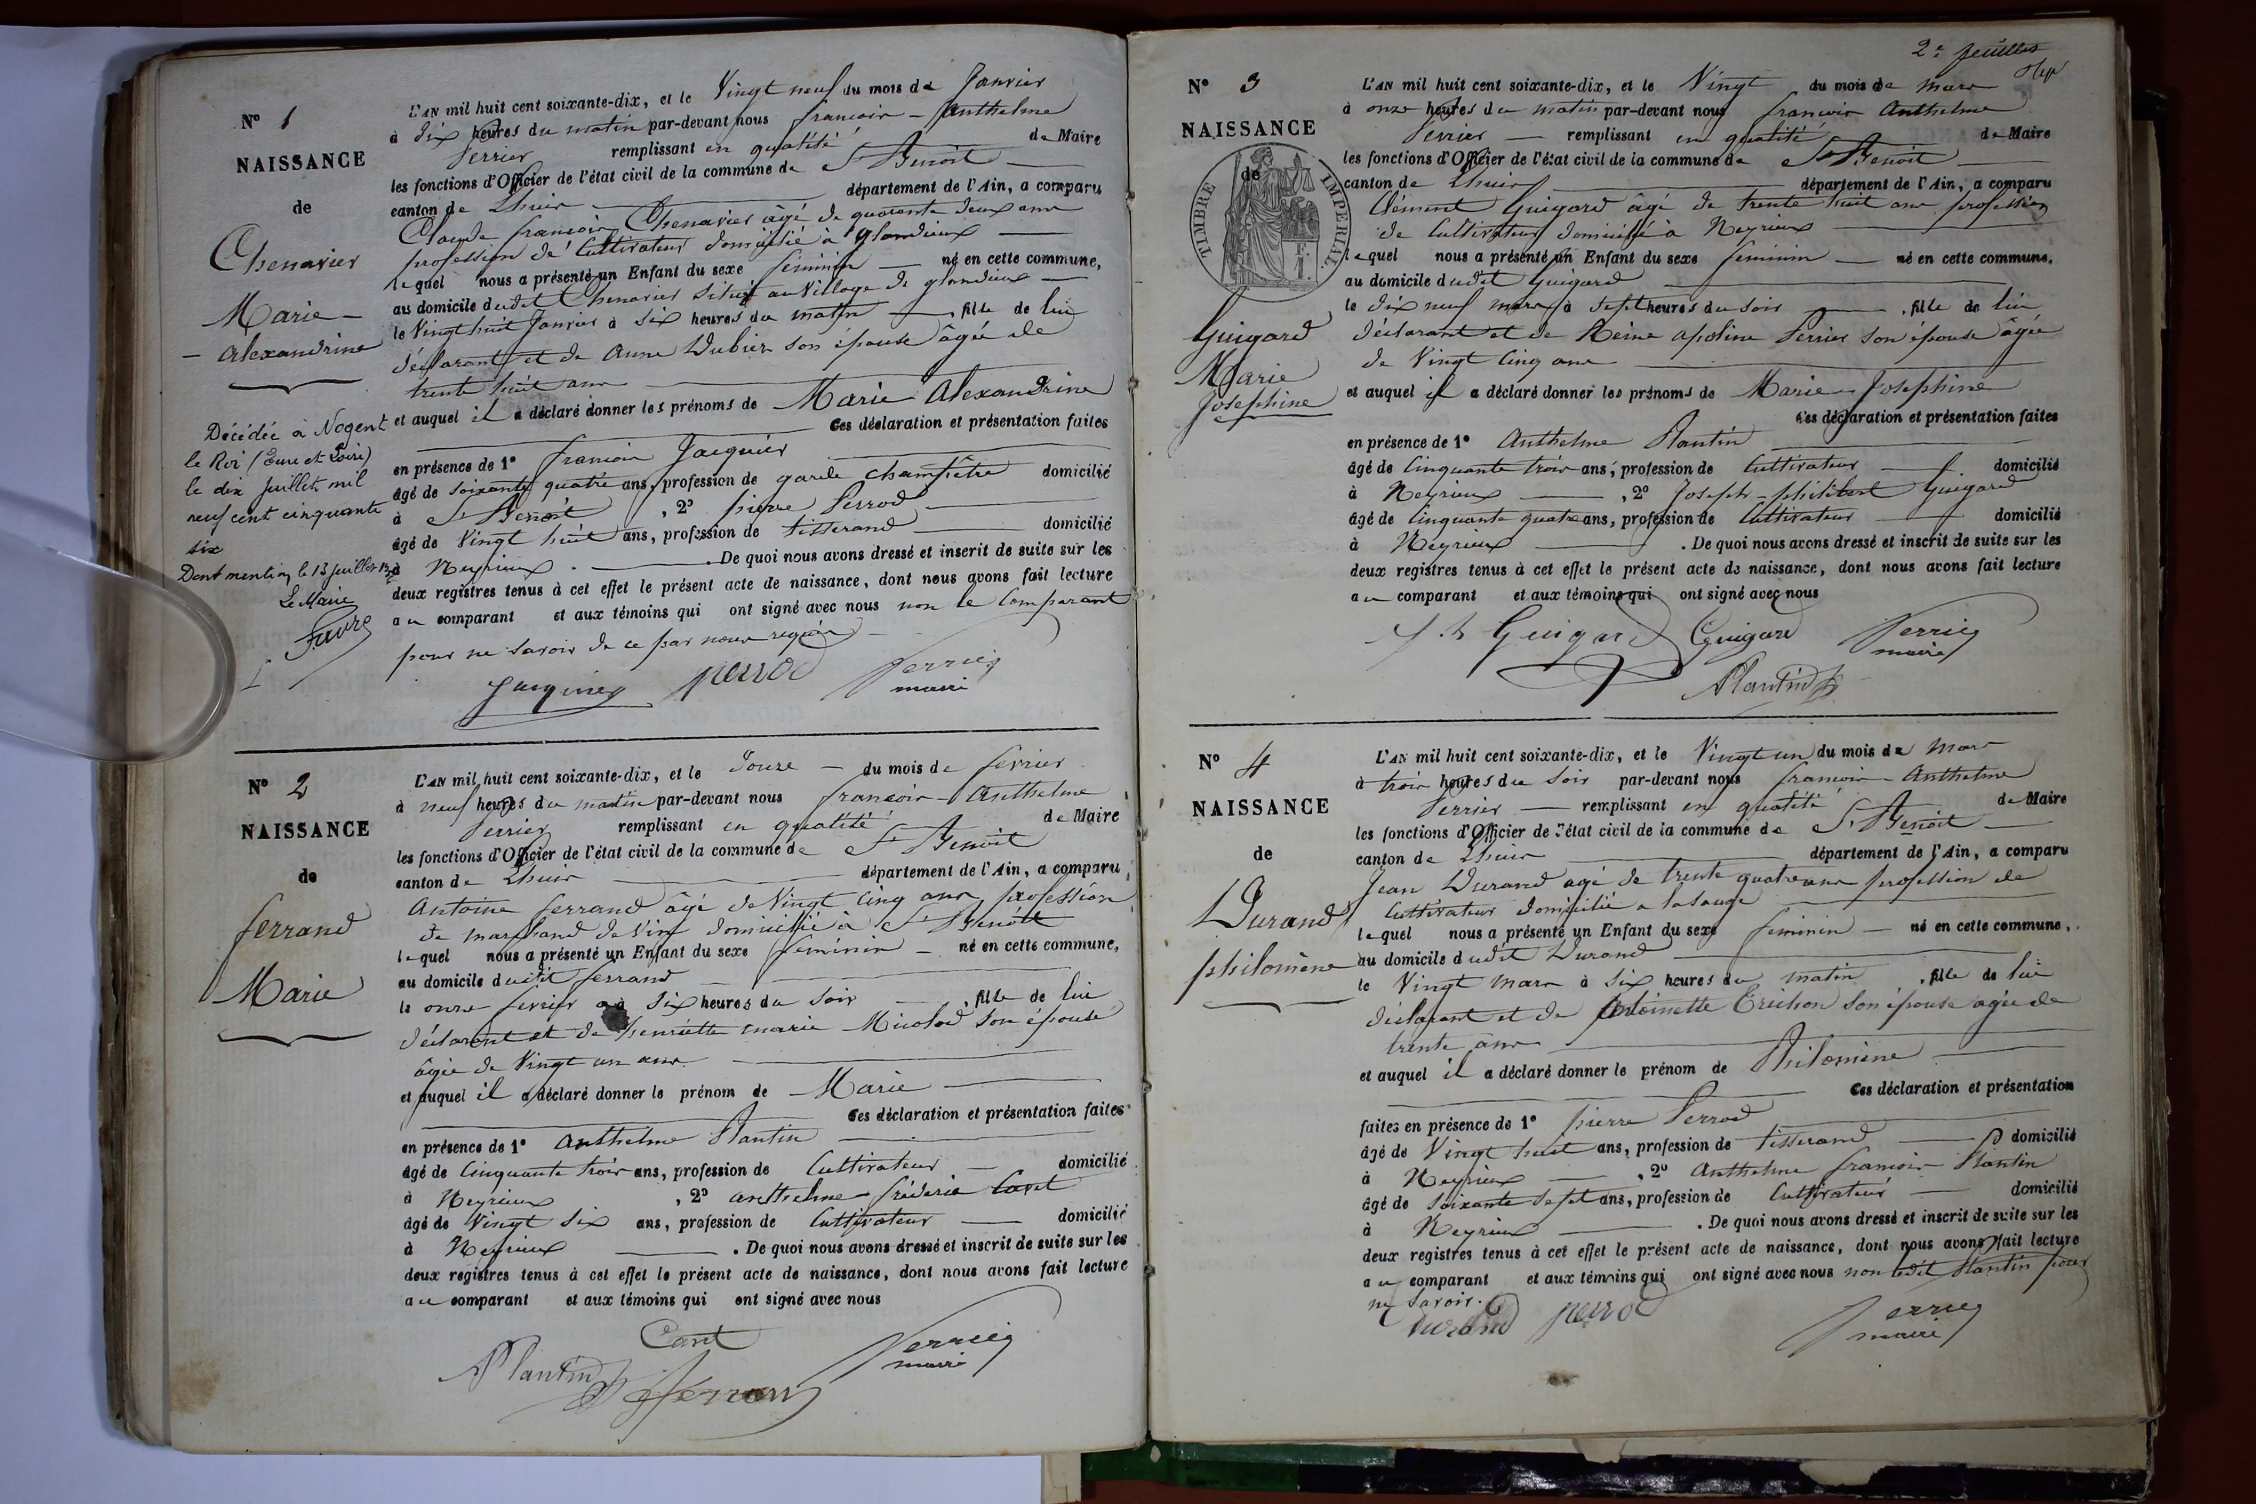 N° 1
NAISSANCE
de
Chenavier
Marie -
- Alexandrine
Décédée à Nogent
le Roi (Eure et Loire)
le dix juillet mil
neuf cent cinquante
six
Dont mention le 13 juillet
Le Maire
Favre
L'AN mil huit cent soixante-dix, et le Vingt neuf du mois de Janvier
à dix heures du matin par-devant nous francois - Anthelme
Perrier remplissant en qualité de Maire
les fonctions d'Officier de l'état civil de la commune de St Benoit
canton de Lhuis département de l'Ain, a comparu
Claude francois Chenavier âgé de quarante deux ans
profession de Cultivateur domicilié à Glandieux
lequel nous a présenté un Enfant du sexe féminin né en cette commune,
au domicile dudit Chenavier situé au village de glandieux
le Vingt huit Janvier à six heures du matin, fille de lui
déclarant et de Anne Dubier son épouse âgée de
trente huit ans
et auquel il a déclaré donner les prénoms de Marie Alexandrine
Ces déclaration et présentation faites
en présence de 1° francois Jacquier
âgé de soixante quatre ans, profession de garde champêtre domicilié
à St Benoit, 2° pierre Perrod
âgé de vingt huit ans, profession de tisserand domicilié
à Neyrieux. De quoi nous avons dressé et inscrit de suite sur les
deux registres tenus à cet effet le présent acte de naissance, dont nous avons fait lecture
au comparant et aux témoins qui ont signé avec nous non le Comparant
pour ne savoir de ce par nous requis
Jacquier perrod Perrier
maire
N° 2
NAISSANCE
de
ferrand
Marie
L'AN mil huit cent soixante-dix, et le douze du mois de fevrier
à neuf heures du matin par-devant nous francois - Anthelme
Perrier remplissant en qualité de Maire
les fonctions d'Officier de l'état civil de la commune de St Benoit
canton de Lhuis département de l'Ain, a comparu
Antoine ferrand âgé de Vingt cinq ans profession
de marchand de vin domicilié à St Benoit
lequel nous a présenté un Enfant du sexe féminin né en cette commune,
au domicile dudit ferrand
le onze fevrier à six heures du soir, fille de lui
déclarant et de henriette marie Micolod son épouse
âgée de Vingt un ans
et auquel il a déclaré donner le prénom de Marie
Ces déclaration et présentation faites
en présence de 1° Anthelme Plantin
âgé de Cinquante trois ans, profession de Cultivateur domicilié
à Neyrieux, 2° anthelme fréderic Caret
âgé de Vingt six ans, profession de Cultivateur domicilié
à Neyrieux. De quoi nous avons dressé et inscrit de suite sur les
deux registres tenus à cet effet le présent acte de naissance, dont nous avons fait lecture
au comparant et aux témoins qui ont signé avec nous
Plantin Perrier
maire
2e feuillet
N° 3
NAISSANCE
de
TIMBRE IMPERIAL.
Guigard
Marie
Josephine
L'AN mil huit cent soixante-dix, et le Vingt du mois de mars
à onze heures du matin par-devant nous francois Anthelme
Perrier remplissant en qualité de Maire
les fonctions d'Officier de l'état civil de la commune de St Benoit
canton de Lhuis département de l'Ain, a comparu
Clément Guigard âgé de trente huit ans profession
de Cultivateur domicilié à Neyrieux
lequel nous a présenté un Enfant du sexe féminin né en cette commune,
au domicile dudit Guigard
le dix neuf mars à sept heures du soir, fille de lui
déclarant et de Reine apoline Perrier son épouse âgée
de Vingt Cinq ans
et auquel il a déclaré donner les prénoms de Marie - Josephine
Ces déclaration et présentation faites
en présence de 1° Anthelme Plantin
âgé de Cinquante trois ans, profession de Cultivateur domicilié
à Neyrieux, 2° Joseph - philibert Guigard
âgé de Cinquante quatre ans, profession de Cultivateur domicilié
à Neyrieux. De quoi nous avons dressé et inscrit de suite sur les
deux registres tenus à cet effet le présent acte de naissance, dont nous avons fait lecture
au comparant et aux témoins qui ont signé avec nous
Guigard Guigard Perrier
maire
Plantin
N° 4
NAISSANCE
de
Durand
philomène
L'AN mil huit cent soixante-dix, et le Vingt un du mois de mars
à trois heures du soir par-devant nous francois - Anthelme
Perrier remplissant en qualité de Maire
les fonctions d'Officier de l'état civil de la commune de St Benoit
canton de Lhuis département de l'Ain, a comparu
Jean Durand agé de trente quatre ans profession de
Cultivateur domicilié a lasauge
lequel nous a présenté un Enfant du sexe féminin né en cette commune,
au domicile dudit Durand
le Vingt mars à six heures du matin, fille de lui
déclarant et de Antoinette Trichon son épouse agée de
trente ans
et auquel il a déclaré donner le prénom de Philomène
Ces déclaration et présentation
faites en présence de 1° pierre Perrod
âgé de Vingt huit ans, profession de tisserand domicilié
à Neyrieux, 2° Anthelme francois Plantin
âgé de soixante sept ans, profession de Cultivateur domicilié
à Neyrieux. De quoi nous avons dressé et inscrit de suite sur les
deux registres tenus à cet effet le présent acte de naissance, dont nous avons fait lecture
au comparant et aux témoins qui ont signé avec nous non ledit Plantin pour
ne savoir.
Durand perrod Perrier
maire